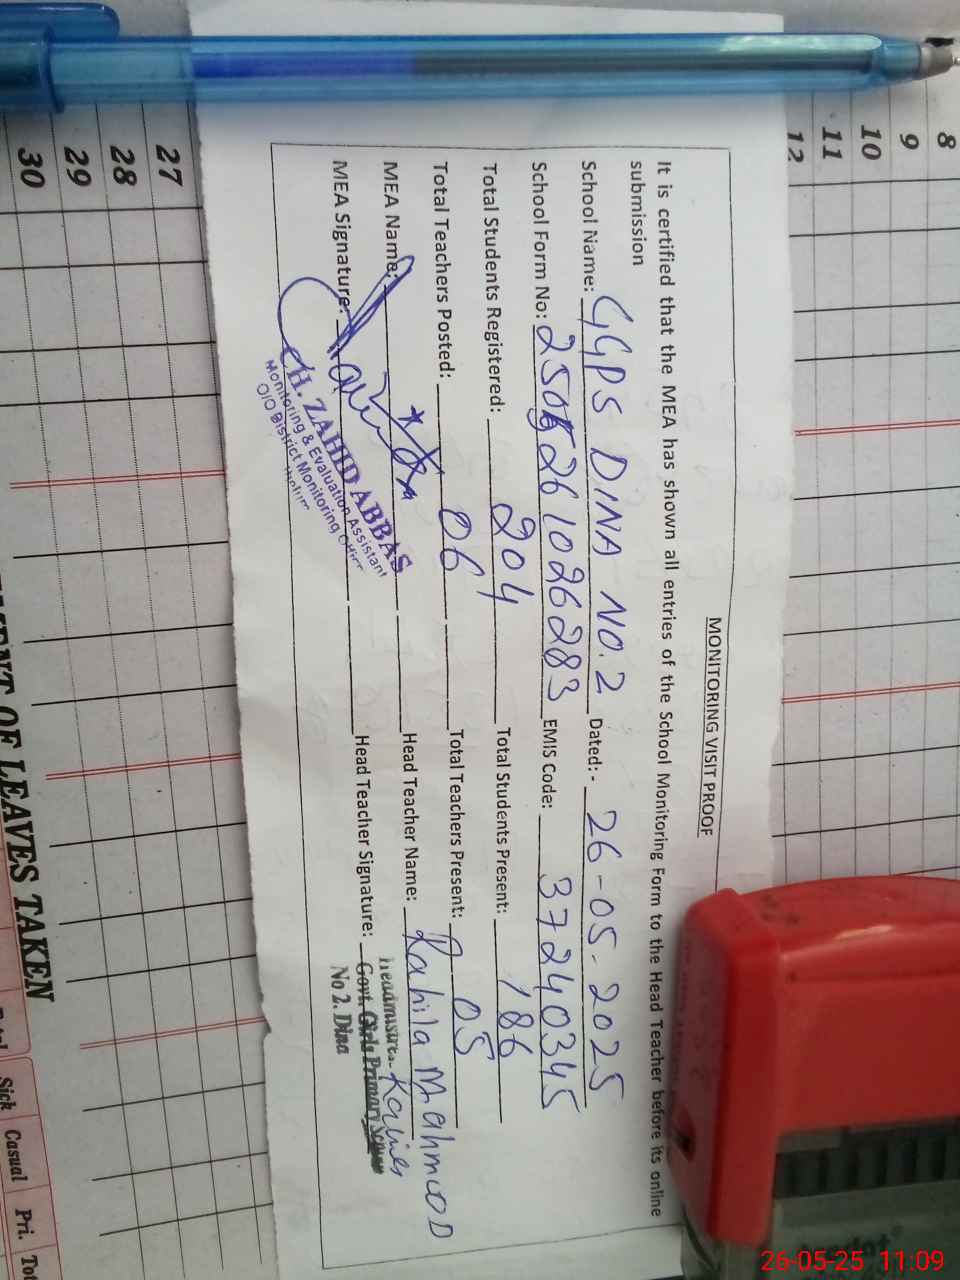 MONITORING VISIT PROOF
It is certified that the MEA has shown all entries of the School Monitoring Form to the Head Teacher before its online
submission
School Name: GGPS DINA NO.2 Dated:- 26-05-2025
School Form No: 2505261026283 EMIS Code: 37240345
Total Students Registered: 204 Total Students Present: 186
Total Teachers Posted: 06 Total Teachers Present: 05
MEA Name: Head Teacher Name: Rahila Mahmood
MEA Signature: Head Teacher Signature:
CH. ZAHID ABBAS
Monitoring & Evaluation Assistant
O/O District Monitoring
Govt. Girls Primary School
No 2. Dina
8
9
10
11
12
27
28
29
30
OF LEAVES TAKEN
Sick Casual Pri.
26-05-25 11:09